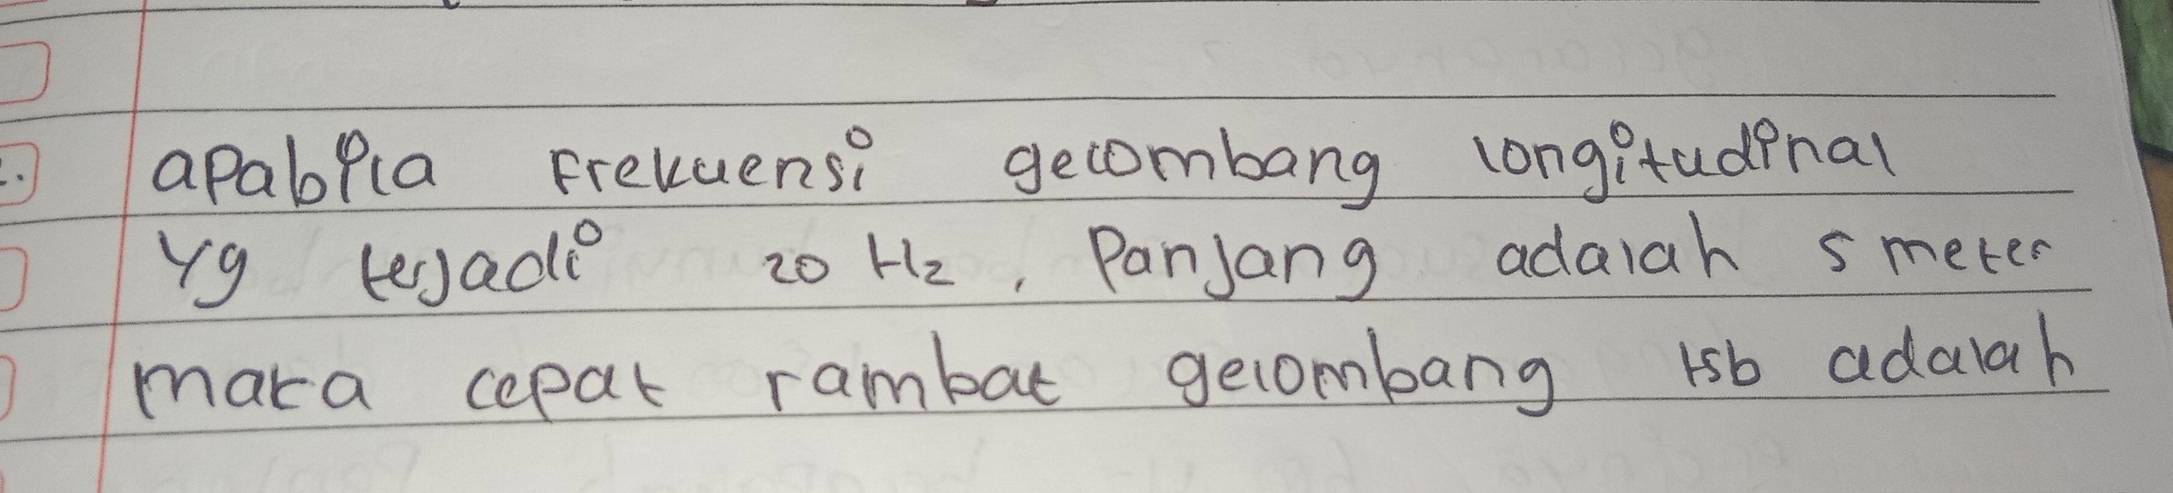 apabila Frekuensi gelombang longitudinal
yg terjadi 20 Hz, Panjang adalah 5 meter
maka cepat rambat gelombang tsb adalah